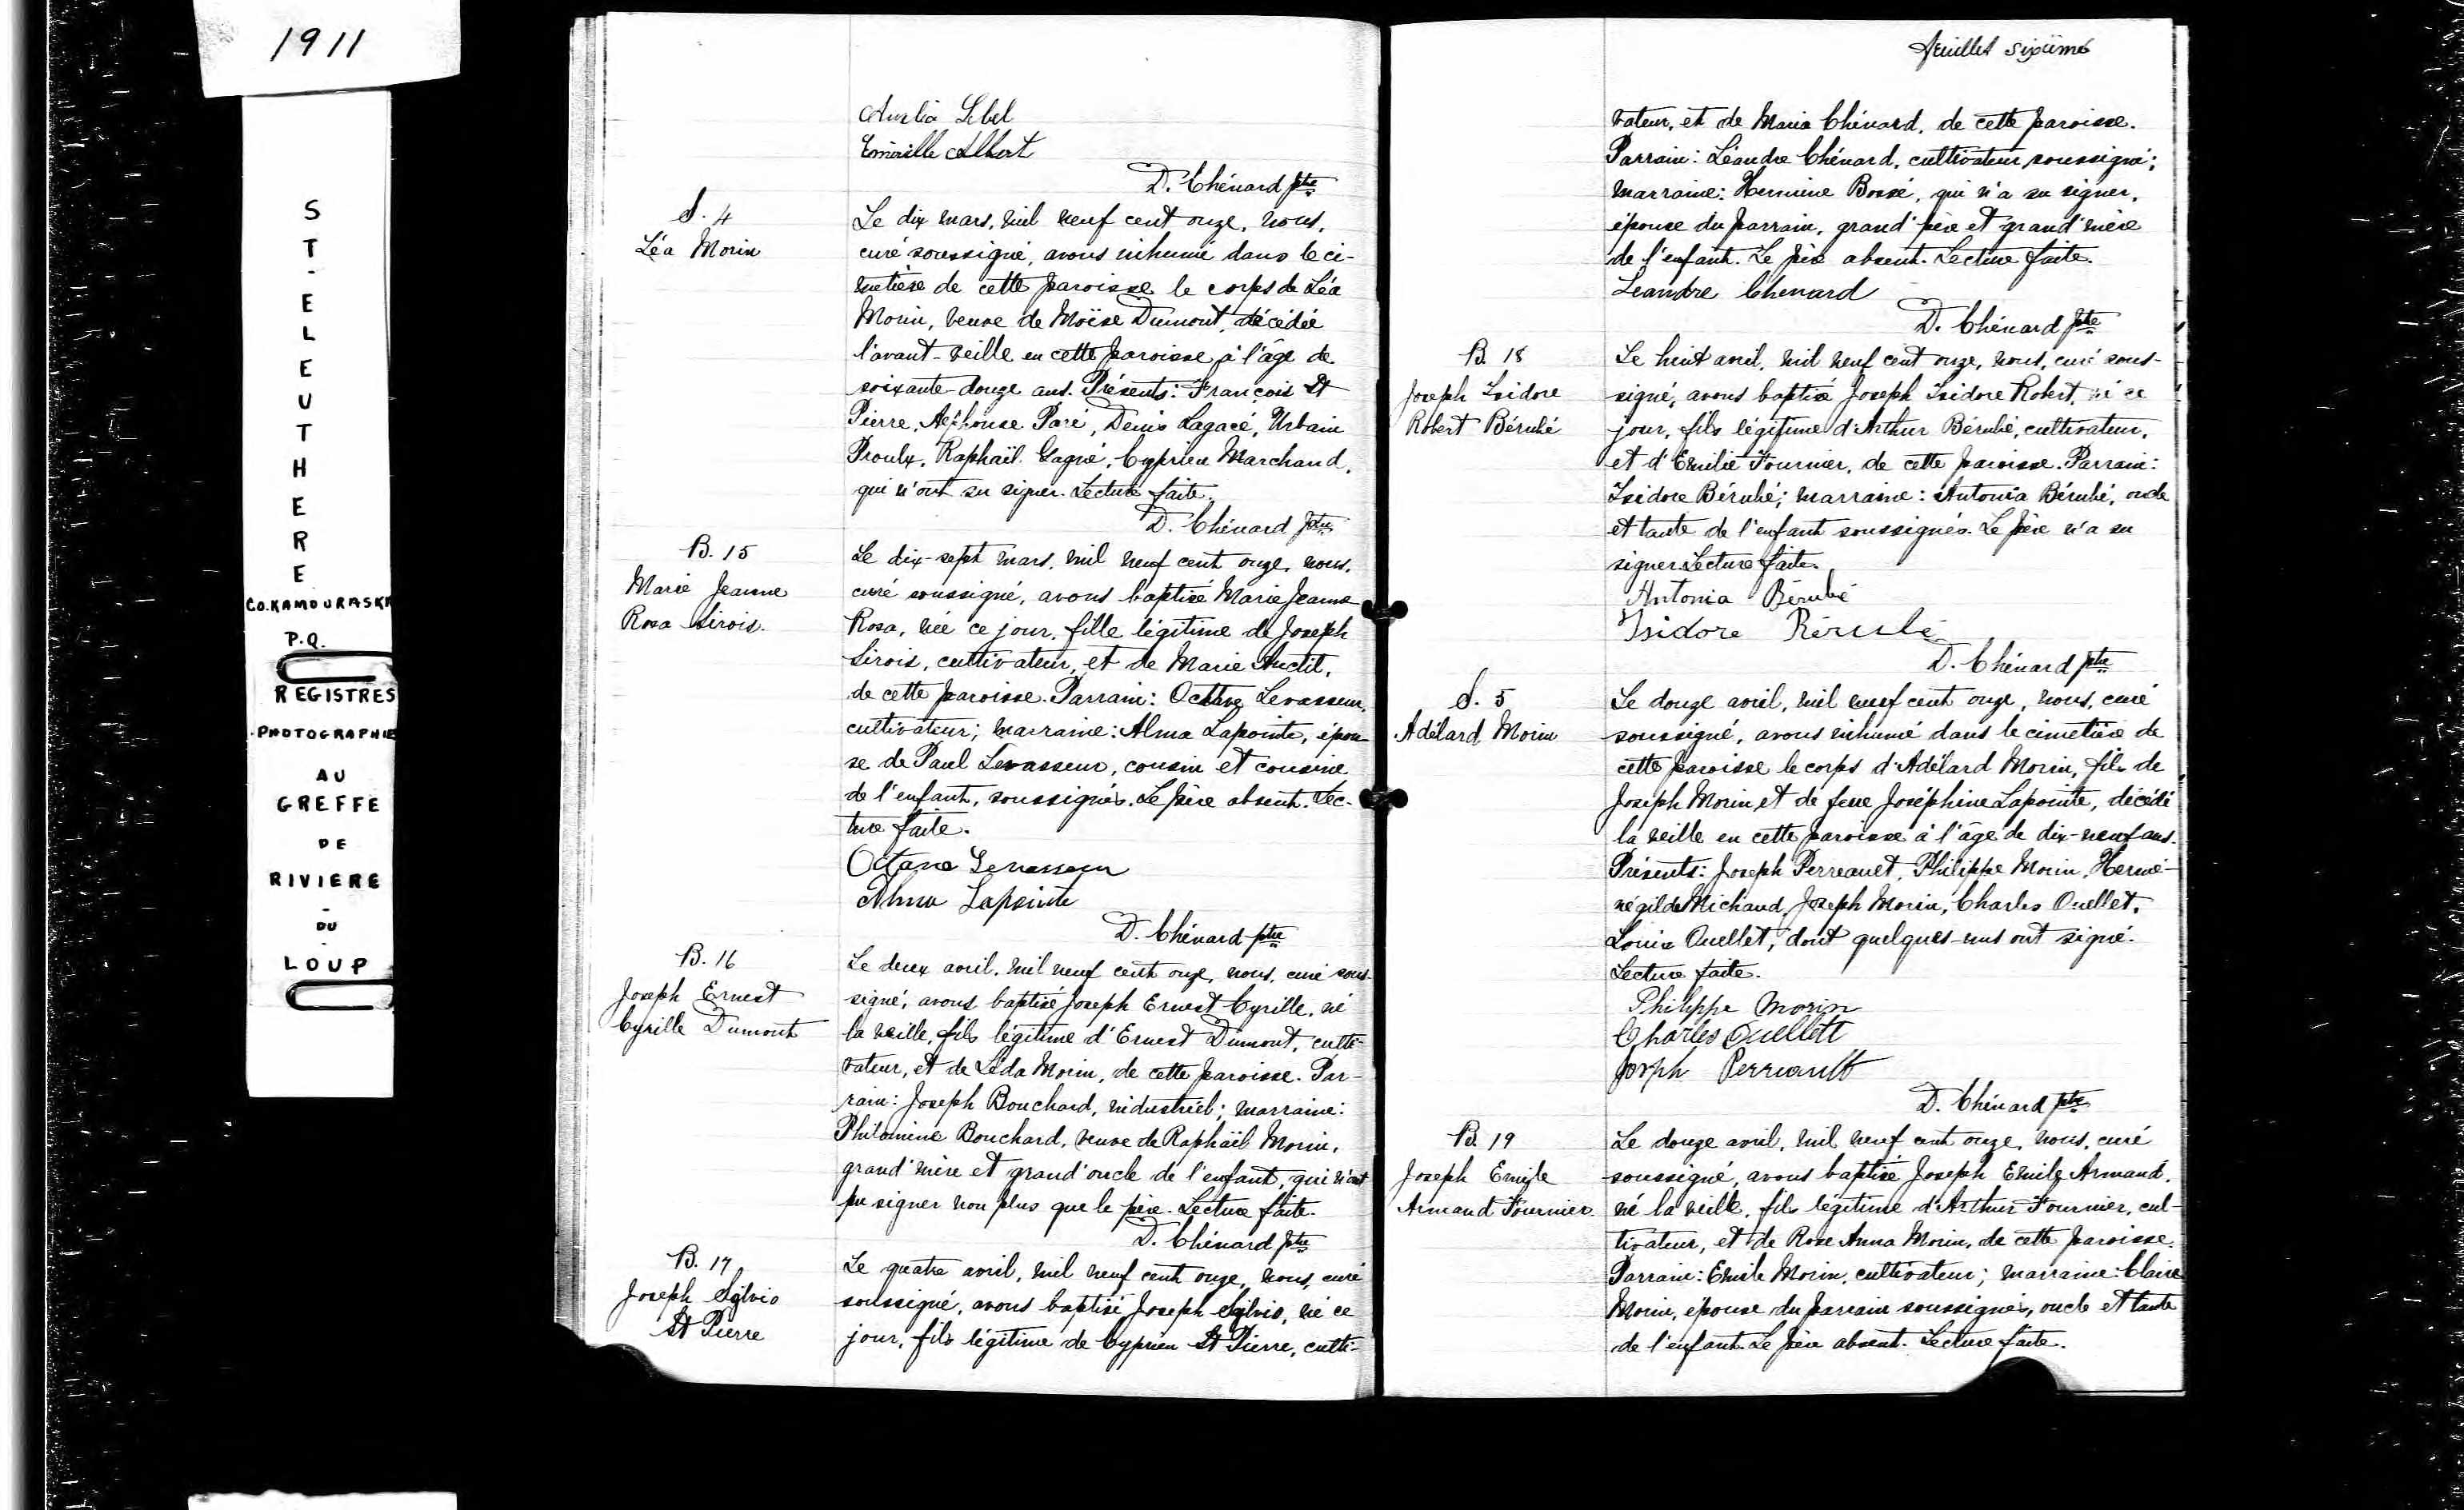 1911
ST-ELEUTHERE
CO. KAMOURASKA
P.Q.
REGISTRES
PHOTOGRAPHIE
AU
GREFFE
DE
RIVIERE
-
DU
-
LOUP
Aurélia Lebel
Emérille Albert
D. Chénard ptre
S. 4
Léa Morin
Le dix mars, mil neuf cent onze, nous,
curé soussigné, avons inhumé dans le ci-
metière de cette paroisse le corps de Léa
Morin, veuve de Moïse Dumont, décédée
l'avant-veille en cette paroisse à l'âge de
soixante-douze ans. Présents: François St
Pierre, Alphonse Paré, Denis Lagacé, Urbain
Proulx, Raphaël Gagné, Cyprien Marchand,
qui n'ont su signer. Lecture faite.
D. Chénard ptre
B. 15
Marie Jeanne
Rosa Sirois.
Le dix-sept mars, mil neuf cent onze, nous,
curé soussigné, avons baptisé Marie Jeanne
Rosa, née ce jour, fille légitime de Joseph
Sirois, cultivateur, et de Marie Auclit,
de cette paroisse. Parrain: Octave Levasseur,
cultivateur; marraine: Alma Lapointe, épou-
se de Paul Levasseur, cousin et cousine
de l'enfant, soussignés. Le père absent. Lec-
ture faite.
Octave Levasseur
Alma Lapointe
D. Chénard ptre
B. 16
Joseph Ernest
Cyrille Dumont
Le deux avril, mil neuf cent onze, nous, curé sous-
signé, avons baptisé Joseph Ernest Cyrille, né
la veille, fils légitime d'Ernest Dumont, culti-
vateur, et de Léda Morin, de cette paroisse. Par-
rain: Joseph Bouchard, industriel; marraine:
Philomène Bouchard, veuve de Raphaël Morin,
grand'mère et grand'oncle de l'enfant, qui n'ont
pu signer non plus que le père. Lecture faite.
D. Chénard ptre
B. 17
Joseph Sylvio
St Pierre
Le quatre avril, mil neuf cent onze, nous, curé
soussigné, avons baptisé Joseph Sylvio, né ce
jour, fils légitime de Cyprien St Pierre, culti-
feuillet sixième
vateur, et de Maria Chénard, de cette paroisse.
Parrain: Léandre Chénard, cultivateur soussigné;
marraine: Hermine Bossé, qui n'a su signer,
épouse du parrain, grand'père et grand'mère
de l'enfant. Le père absent. Lecture faite.
Leandre Chenard
D. Chénard ptre
B. 18
Joseph Isidore
Robert Bérubé
Le huit avril, mil neuf cent onze, nous, curé sous-
signé, avons baptisé Joseph Isidore Robert, né ce
jour, fils légitime d'Arthur Bérubé, cultivateur,
et d'Emilie Fournier, de cette paroisse. Parrain:
Isidore Bérubé; marraine: Antonia Bérubé, oncle
et tante de l'enfant soussignés. Le père n'a su
signer. Lecture faite.
Antonia Bérubé
Isidore Bérubé
D. Chénard ptre
S. 5
Adélard Morin
Le douze avril, mil neuf cent onze, nous, curé
soussigné, avons inhumé dans le cimetière de
cette paroisse le corps d'Adélard Morin, fils de
Joseph Morin et de feue Joséphine Lapointe, décédé
la veille en cette paroisse à l'âge de dix-neuf ans.
Présents: Joseph Perreault, Philippe Morin, Hermé-
négilde Michaud, Joseph Morin, Charles Ouellet,
Louis Ouellet, dont quelques-uns ont signé.
Lecture faite.
Philippe Morin
Charles Ouellett
Joseph Perreault
D. Chénard ptre
B. 19
Joseph Emile
Armand Fournier
Le douze avril, mil neuf cent onze, nous, curé
soussigné, avons baptisé Joseph Emile Armand,
né la veille, fils légitime d'Arthur Fournier, cul-
tivateur, et de Rose Anna Morin, de cette paroisse.
Parrain: Emile Morin, cultivateur; marraine: Claire
Morin, épouse du parrain soussignés, oncle et tante
de l'enfant. Le père absent. Lecture faite.